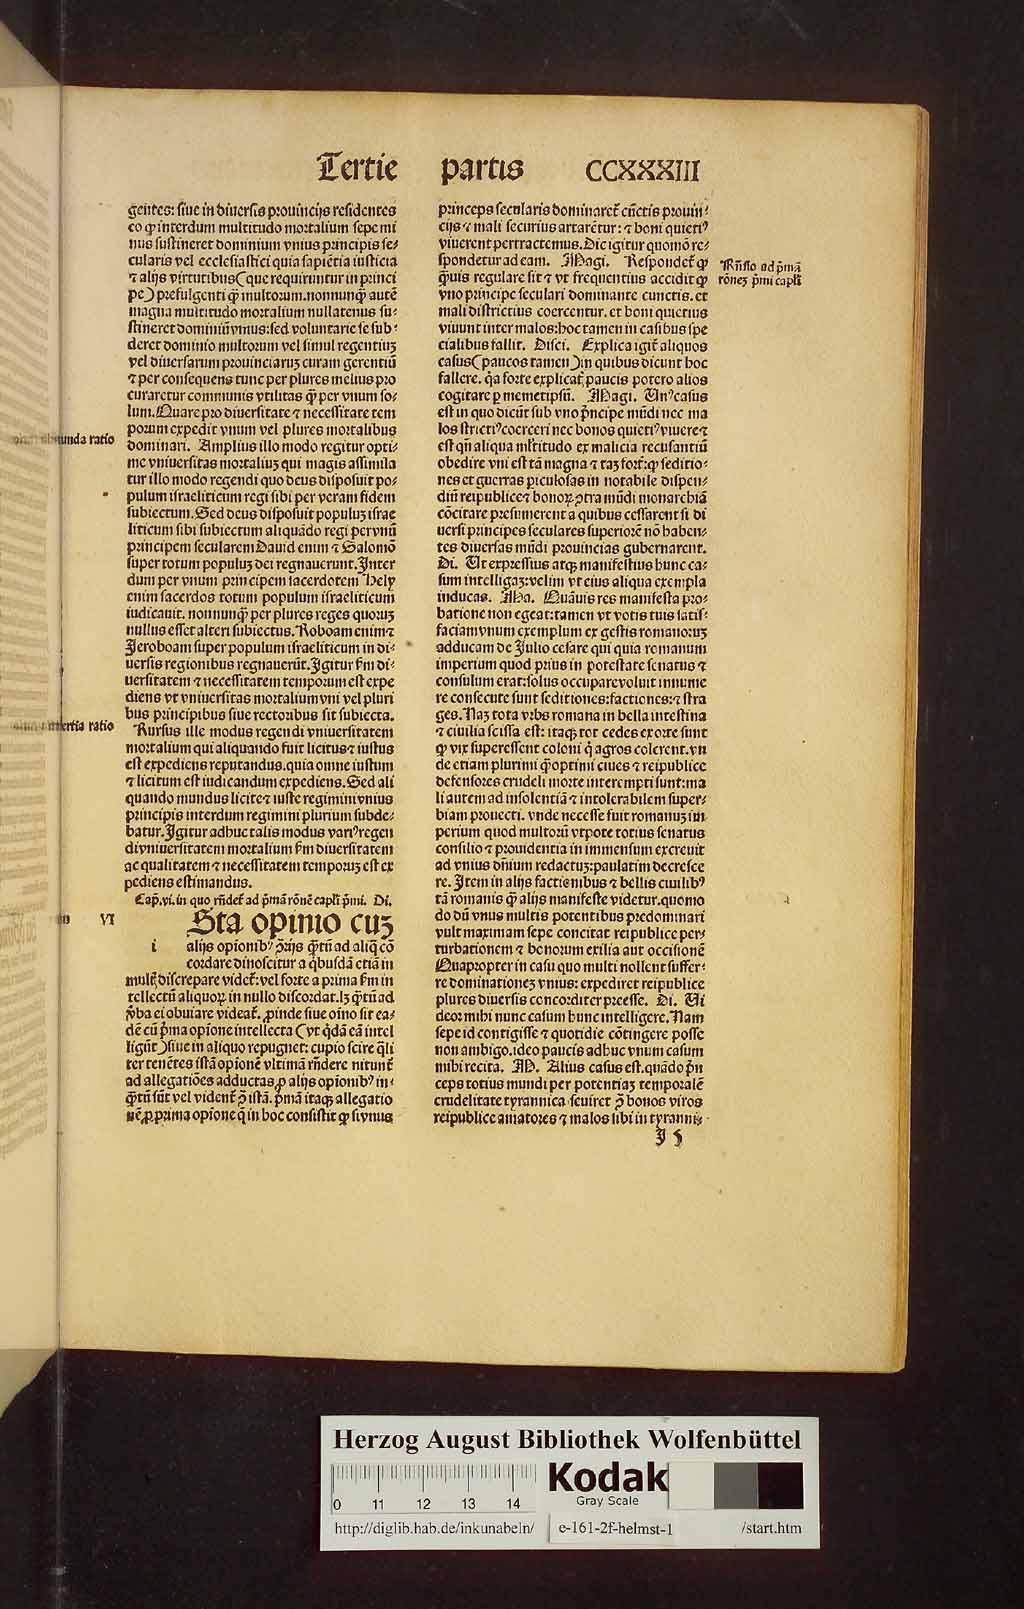 Tertie partis CCXXXIII
gentes: siue in diuersis prouincijs residentes
eo ꝙ interdum multitudo mortalium sepe mi
nus sustineret dominium vnius principis se⸗
cularis vel ecclesiastici quia sapiētia iusticia
⁊ alijs virtutibus (que requiruntur in princi
pe) prefulgenti ꝙ̄ multorum. nonnunꝙ̄ autē
magna multitudo mortalium nullatenus su⸗
stineret dominiū vnius: sed voluntarie se sub⸗
deret dominio multorum vel simul regentiuʒ
vel diuersarum prouinciaruʒ curam gerentiū
⁊ per consequens tunc per plures melius pro
curaretur communis vtilitas ꝙ̄ per vnum so⸗
lum. Quare pro diuersitate ⁊ necessitate tem
porum expedit vnum vel plures mortalibus
dominari. Amplius illo modo regitur opti⸗
me vniuersitas mortaliuʒ qui magis assimila
tur illo modo regendi quo deus disposuit po⸗
pulum israeliticum regi sibi per veram fidem
subiectum. Sed deus disposuit populuʒ israe
liticum sibi subiectum aliquādo regi per vnū
principem secularem Dauid enim ⁊ Salomō
super totum populuʒ dei regnauerunt. Inter
dum per vnum principem sacerdotem Hely
enim sacerdos totum populum israeliticum
iudicauit. nonnunꝙ̄ per plures reges quoruʒ
nullus esset alteri subiectus. Roboam enim ⁊
Jeroboam super populum israeliticum in di⸗
uersis regionibus regnauerūt. Igitur ẜm di⸗
uersitatem ⁊ necessitatem temporum est expe
diens vt vniuersitas mortalium vni vel pluri
bus principibus siue rectoribus sit subiecta.
Rursus ille modus regendi vniuersitatem
mortalium qui aliquando fuit licitus ⁊ iustus
est expediens reputandus. quia omne iustum
⁊ licitum est iudicandum expediens. Sed ali
quando mundus licite ⁊ iuste regimini vnius
principis interdum regimini plurium subde⸗
batur. Igitur adhuc talis modus variꝰ regen
di vniuersitatem mortalium ẜm diuersitatem
ac qualitatem ⁊ necessitatem temporuʒ est ex
pediens estimandus.
Cap. vi. in quo rn̄det ad p̄mā rōnē capl̄i p̄mi. Di.
Sta opinio cuʒ
i alijs opionibꝰ ꝯ̄rijs q̄tū ad aliq̄ cō
cordare dinoscitur a qbusdā etiā in
mult discrepare videt: vel forte a prima ẜm in
tellectū aliquoꝝ in nullo discordat. lʒ q̄tū ad
v̄ba ei obuiare videat. ꝓinde siue oīno sit ea⸗
dē cū p̄ma opione intellecta (vt qdā eā intel
ligūt) siue in aliquo repugnet: cupio scire q̄li
ter tenētes istā opionē vltimā rn̄dere nitunt
ad allegatiōes adductas ꝓ alijs opionibꝰ in⸗
q̄tū sūt vel vident ꝯ̄ istā. p̄mā itaqʒ allegatio
nē ꝓ prima opione q̄ in hoc consistit ꝙ si vnus
princeps secularis dominaret cūctis prouin⸗
cijs ⁊ mali securius artarētur: ⁊ boni quietiꝰ
viuerent pertractemus. Dic igitur quomō re⸗
spondetur ad eam. Magi. Respondet ꝙ
q̄uis regulare sit ⁊ vt frequentius accidit ꝙ
vno principe seculari dominante cunctis. et
mali districtius coercentur. et boni quietius
viuunt inter malos: hoc tamen in casibus spe
cialibus fallit. Disci. Explica igit aliquos
casus (paucos tamen) in quibus dicunt hoc
fallere. q̄a forte explicat paucis potero alios
cogitare ꝑ memetipsū. Magi. Unꝰ casus
est in quo dicūt sub vno p̄ncipe mūdi nec ma
los strictiꝰ coerceri nec bonos quietiꝰ viuere ⁊
est qn̄ aliqua ml̄titudo ex malicia recusantiū
obedire vni est tā magna ⁊ taʒ fort: ꝙ seditio⸗
nes et guerras ꝑiculosas in notabile dispen⸗
diū reipublice ⁊ bonoꝝ ꝯtra mūdi monarchiā
cōcitare presumerent a quibus cessarent si di
uersi principes seculares superiorē nō haben⸗
tes diuersas mūdi prouincias gubernarent.
Di. Ut expressius atqʒ manifestius hunc ca⸗
sum intelligaʒ: velim vt eius aliqua exempla
inducas. Ma. Quāuis res manifesta pro⸗
batione non egeat: tamen vt votis tuis satis⸗
faciam vnum exemplum ex gestis romanoruʒ
adducam de Julio cesare qui quia romanum
imperium quod prius in potestate senatus ⁊
consulum erat: solus occupare voluit innume
re consecute sunt seditiones: factiones: ⁊ stra
ges. Naʒ tota vrbs romana in bella intestina
⁊ ciuilia scissa est: itaqʒ tot cedes exorte sunt
ꝙ vix superessent coloni q̄ agros colerent. vn
de etiam plurimi q̄ optimi ciues ⁊ reipublice
defensores crudeli morte interempti sunt: ma
li autem ad insolentiā ⁊ intolerabilem super⸗
biam prouecti. vnde necesse fuit romanuʒ im
perium quod multorū vtpote totius senatus
consilio ⁊ prouidentia in immensum excreuit
ad vnius dn̄ium redactuʒ: paulatim decresce
re. Item in alijs factionibus ⁊ bellis ciuilibꝰ
tā romanis ꝙ̄ alijs manifeste videtur. quomo
do dū vnus multis potentibus predominari
vult maximam sepe concitat reipublice per⸗
turbationem ⁊ bonorum exilia aut occisionē
Quapropter in casu quo multi nollent suffer⸗
re dominationeʒ vnius: expediret reipublice
plures diuersis concorditer preesse. Di. Ui
deor mihi nunc casum hunc intelligere. Nam
sepe id contigisse ⁊ quotidie cōtingere posse
non ambigo. ideo paucis adhuc vnum casum
mihi recita. M. Alius casus est. quādo p̄n
ceps totius mundi per potentiaʒ temporalē
crudelitate tyrannica seuiret ꝯ̄ bonos viros
reipublice amatores ⁊ malos sibi in tyranni⸗
J 5
Rn̄sio ad p̄mā
rōneʒ p̄mi capl̄i
unda ratio
tertia ratio
VI
Herzog August Bibliothek Wolfenbüttel
0 11 12 13 14
Kodak
Gray Scale
http://diglib.hab.de/inkunabeln/ e-161-2f-helmst-1 /start.htm